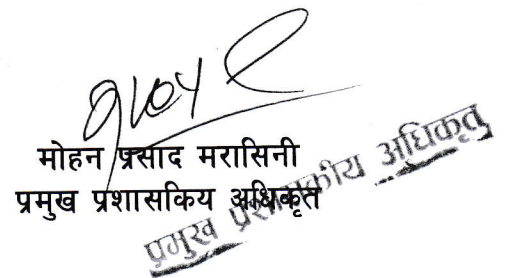 मोहन प्रसाद मरासिनी
प्रमुख प्रशासकिय अधिकृत
प्रमुख प्रशासकीय अधिकृत